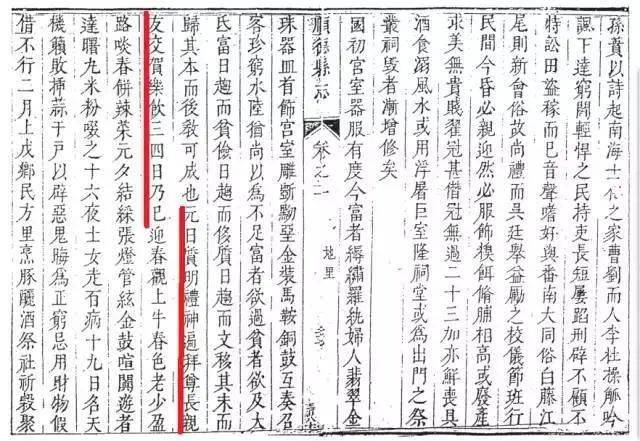 孫蕡以詩起南海士之家曹劉人李杜操觚吟
諷下達窮閻輕悍之民持吏長短屢蹈刑辟不顧不
特訟田盜稼而已音聲嗜好與番南大同俗白藤江
尾則新會俗故尚禮而具廷舉益勵之校儀節班行
民間今昏必親迎然必服飾餌脩脯相高或廢產
求美無貴賤擢冠甚僭冠無過二十三加亦鮮喪具
酒食溺風水或用浮屠巨室隆祠堂或為出門之祭
叢祠毀者漸增修矣
國初宮室器服有度今富者縟繡羅紈婦人翡翠金
順德縣志 卷之一 地里
珠器皿首飾宮室雕斲黝堊金裝馬鞍銅鼓互奏召
客珍窮水陸猶尚以為不足富者欲過貧者欲及大
氐富日趨而貧儉日趨而侈質日趨而文移其末而
歸其本而後敎可成也元日質明禮神遍拜尊長親
友交賀樂飲三四日乃已迎春觀土牛春色老少盈
路啖春餅辣菜元夕結綵張燈管絃金鼓喧闐遊者
達曙九米粉啜之十六夜士女走有病十九日名天
機籟敗掛蒜于戶以辟惡鬼晦為正窮忌用財物假
借不行二月上戊鄉民方里烹豚釃酒祭社祈穀聚